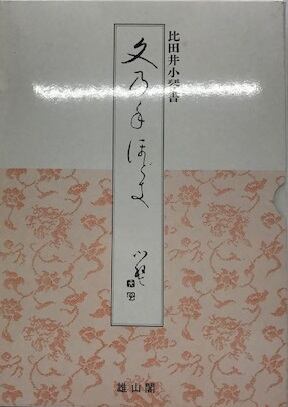 比田井小琴書
文乃手ほどき
小琴
雄山閣